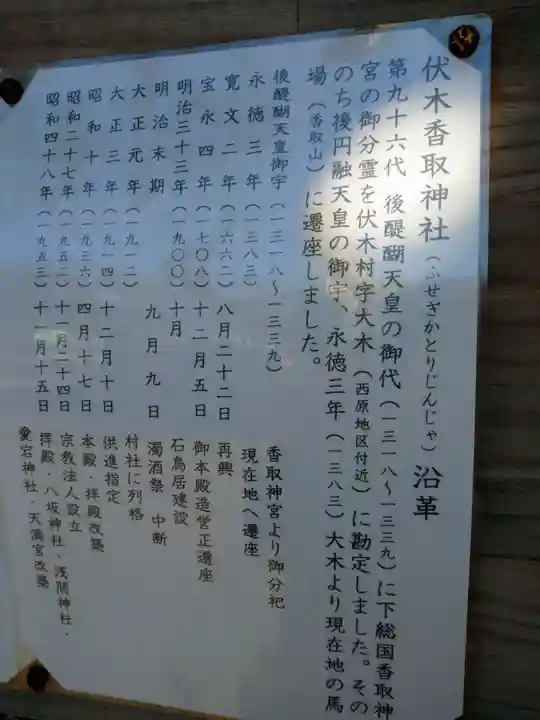 伏木香取神社（ふせぎかとりじんじゃ）沿革
第九十六代　後醍醐天皇の御代（一三一八～一三三九）に下総国香取神
宮の御分霊を伏木村字大木（西原地区付近）に勘定しました。その
のち後円融天皇の御宇、永徳三年（一三八三）大木より現在地の馬
場（香取山）に遷座しました。
後醍醐天皇御宇（一三一八～一三三九）　香取神宮より御分祀
永徳三年（一三八三）　現在地へ遷座
寛文二年（一六六二）八月二十二日　再興
宝永四年（一七〇八）十二月五日　御本殿造営正遷座
明治三十三年（一九〇〇）十月　石鳥居建設
明治末期　九月九日　濁酒祭　中断
大正元年（一九一二）　村社に列格
大正三年（一九一四）十二月十日　供進指定
昭和十年（一九三六）四月十七日　本殿・拝殿改築
昭和二十七年（一九五二）十一月二十四日　宗教法人設立
昭和四十八年（一九五三）十一月十五日　拝殿・八坂神社・浅間神社・
愛宕神社・天満宮改築